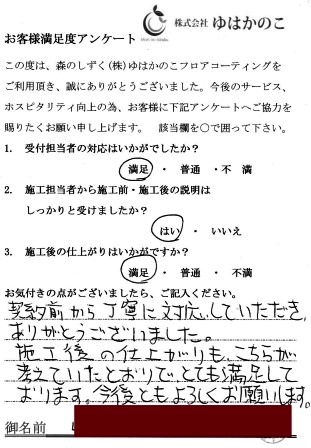 株式会社 ゆはかのこ
お客様満足度アンケート
この度は、森のしずく(株)ゆはかのこフロアコーティングを
ご利用頂き、誠にありがとうございました。今後のサービス、
ホスピタリティ向上の為、お客様に下記アンケートへご協力を
賜りたくお願い申し上げます。 該当欄を○で囲って下さい。
1. 受付担当者の対応はいかがでしたか？
満足 ・ 普通 ・不 満
2. 施工担当者から施工前・施工後の説明は
しっかりと受けましたか？
はい ・ いいえ
3. 施工後の仕上がりはいかがですか？
満足 ・ 普通 ・ 不満
お気付きの点がございましたら、ご記入ください。
契約前から丁寧に対応していただき、
ありがとうございました。
施工後の仕上がりも、こちらが
考えていたとおりで、とても満足して
おります。今後ともよろしくお願いします。
御名前